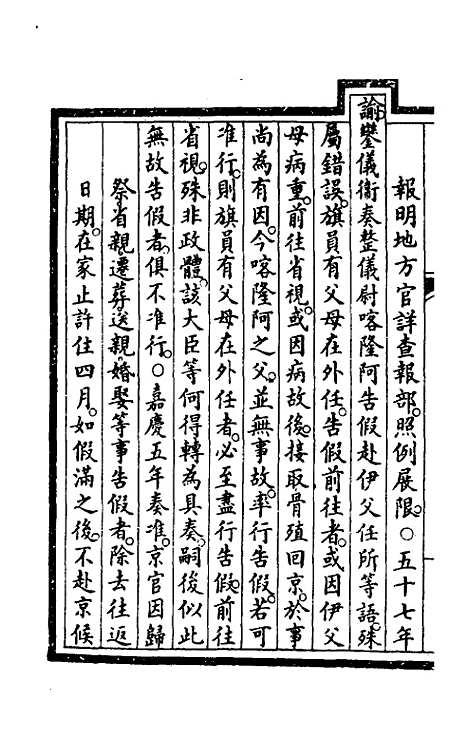 報明地方官詳查報部。照例展限。○五十七年
諭鑾儀衛奏整儀尉喀隆阿告假赴伊父任所等語。殊
屬錯誤。旗員有父母在外任。告假前往者。或因伊父
母病重。前往省視。或因病故後。接取骨殖回京。於事
尚為有因。今喀隆阿之父。並無事故。率行告假。若可
准行。則旗員有父母在外任者。必至盡行告假。前往
省視。殊非政體。該大臣等何得轉為具奏。嗣後似此
無故告假者。俱不准行。○嘉慶五年奏准。京官因歸
祭省親遷葬送親婚娶等事告假者。除去往返
日期。在家止許住四月。如假滿之後。不赴京候